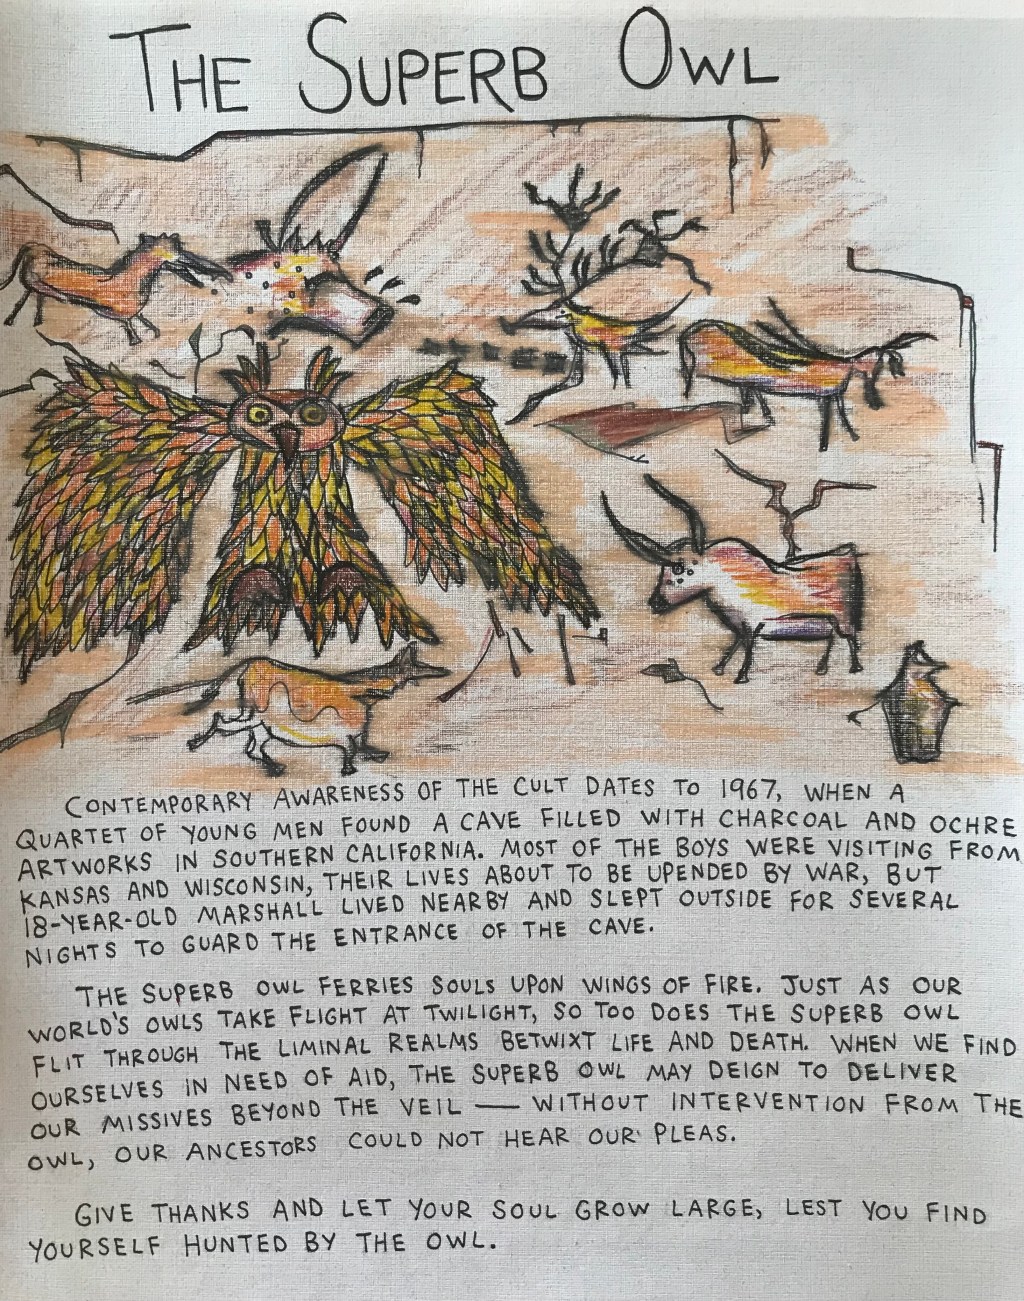 THE SUPERB OWL
CONTEMPORARY AWARENESS OF THE CULT DATES TO 1967, WHEN A
QUARTET OF YOUNG MEN FOUND A CAVE FILLED WITH CHARCOAL AND OCHRE
ARTWORKS IN SOUTHERN CALIFORNIA. MOST OF THE BOYS WERE VISITING FROM
KANSAS AND WISCONSIN, THEIR LIVES ABOUT TO BE UPENDED BY WAR, BUT
18-YEAR-OLD MARSHALL LIVED NEARBY AND SLEPT OUTSIDE FOR SEVERAL
NIGHTS TO GUARD THE ENTRANCE OF THE CAVE.
THE SUPERB OWL FERRIES SOULS UPON WINGS OF FIRE. JUST AS OUR
WORLD'S OWLS TAKE FLIGHT AT TWILIGHT, SO TOO DOES THE SUPERB OWL
FLIT THROUGH THE LIMINAL REALMS BETWIXT LIFE AND DEATH. WHEN WE FIND
OURSELVES IN NEED OF AID, THE SUPERB OWL MAY DEIGN TO DELIVER
OUR MISSIVES BEYOND THE VEIL — WITHOUT INTERVENTION FROM THE
OWL, OUR ANCESTORS COULD NOT HEAR OUR PLEAS.
GIVE THANKS AND LET YOUR SOUL GROW LARGE, LEST YOU FIND
YOURSELF HUNTED BY THE OWL.